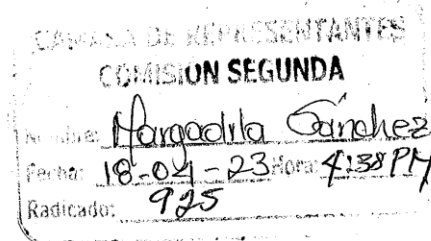 CAMARA DE REPRESENTANTES
COMISION SEGUNDA
Nombre: Margadila Sánchez
Fecha: 18-04-23 Hora: 4:38 PM
Radicado: 925